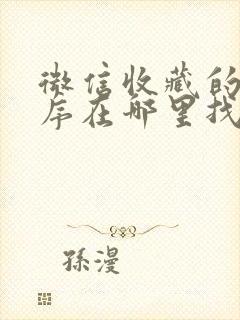 微信收藏的
序在哪里找
孫漫